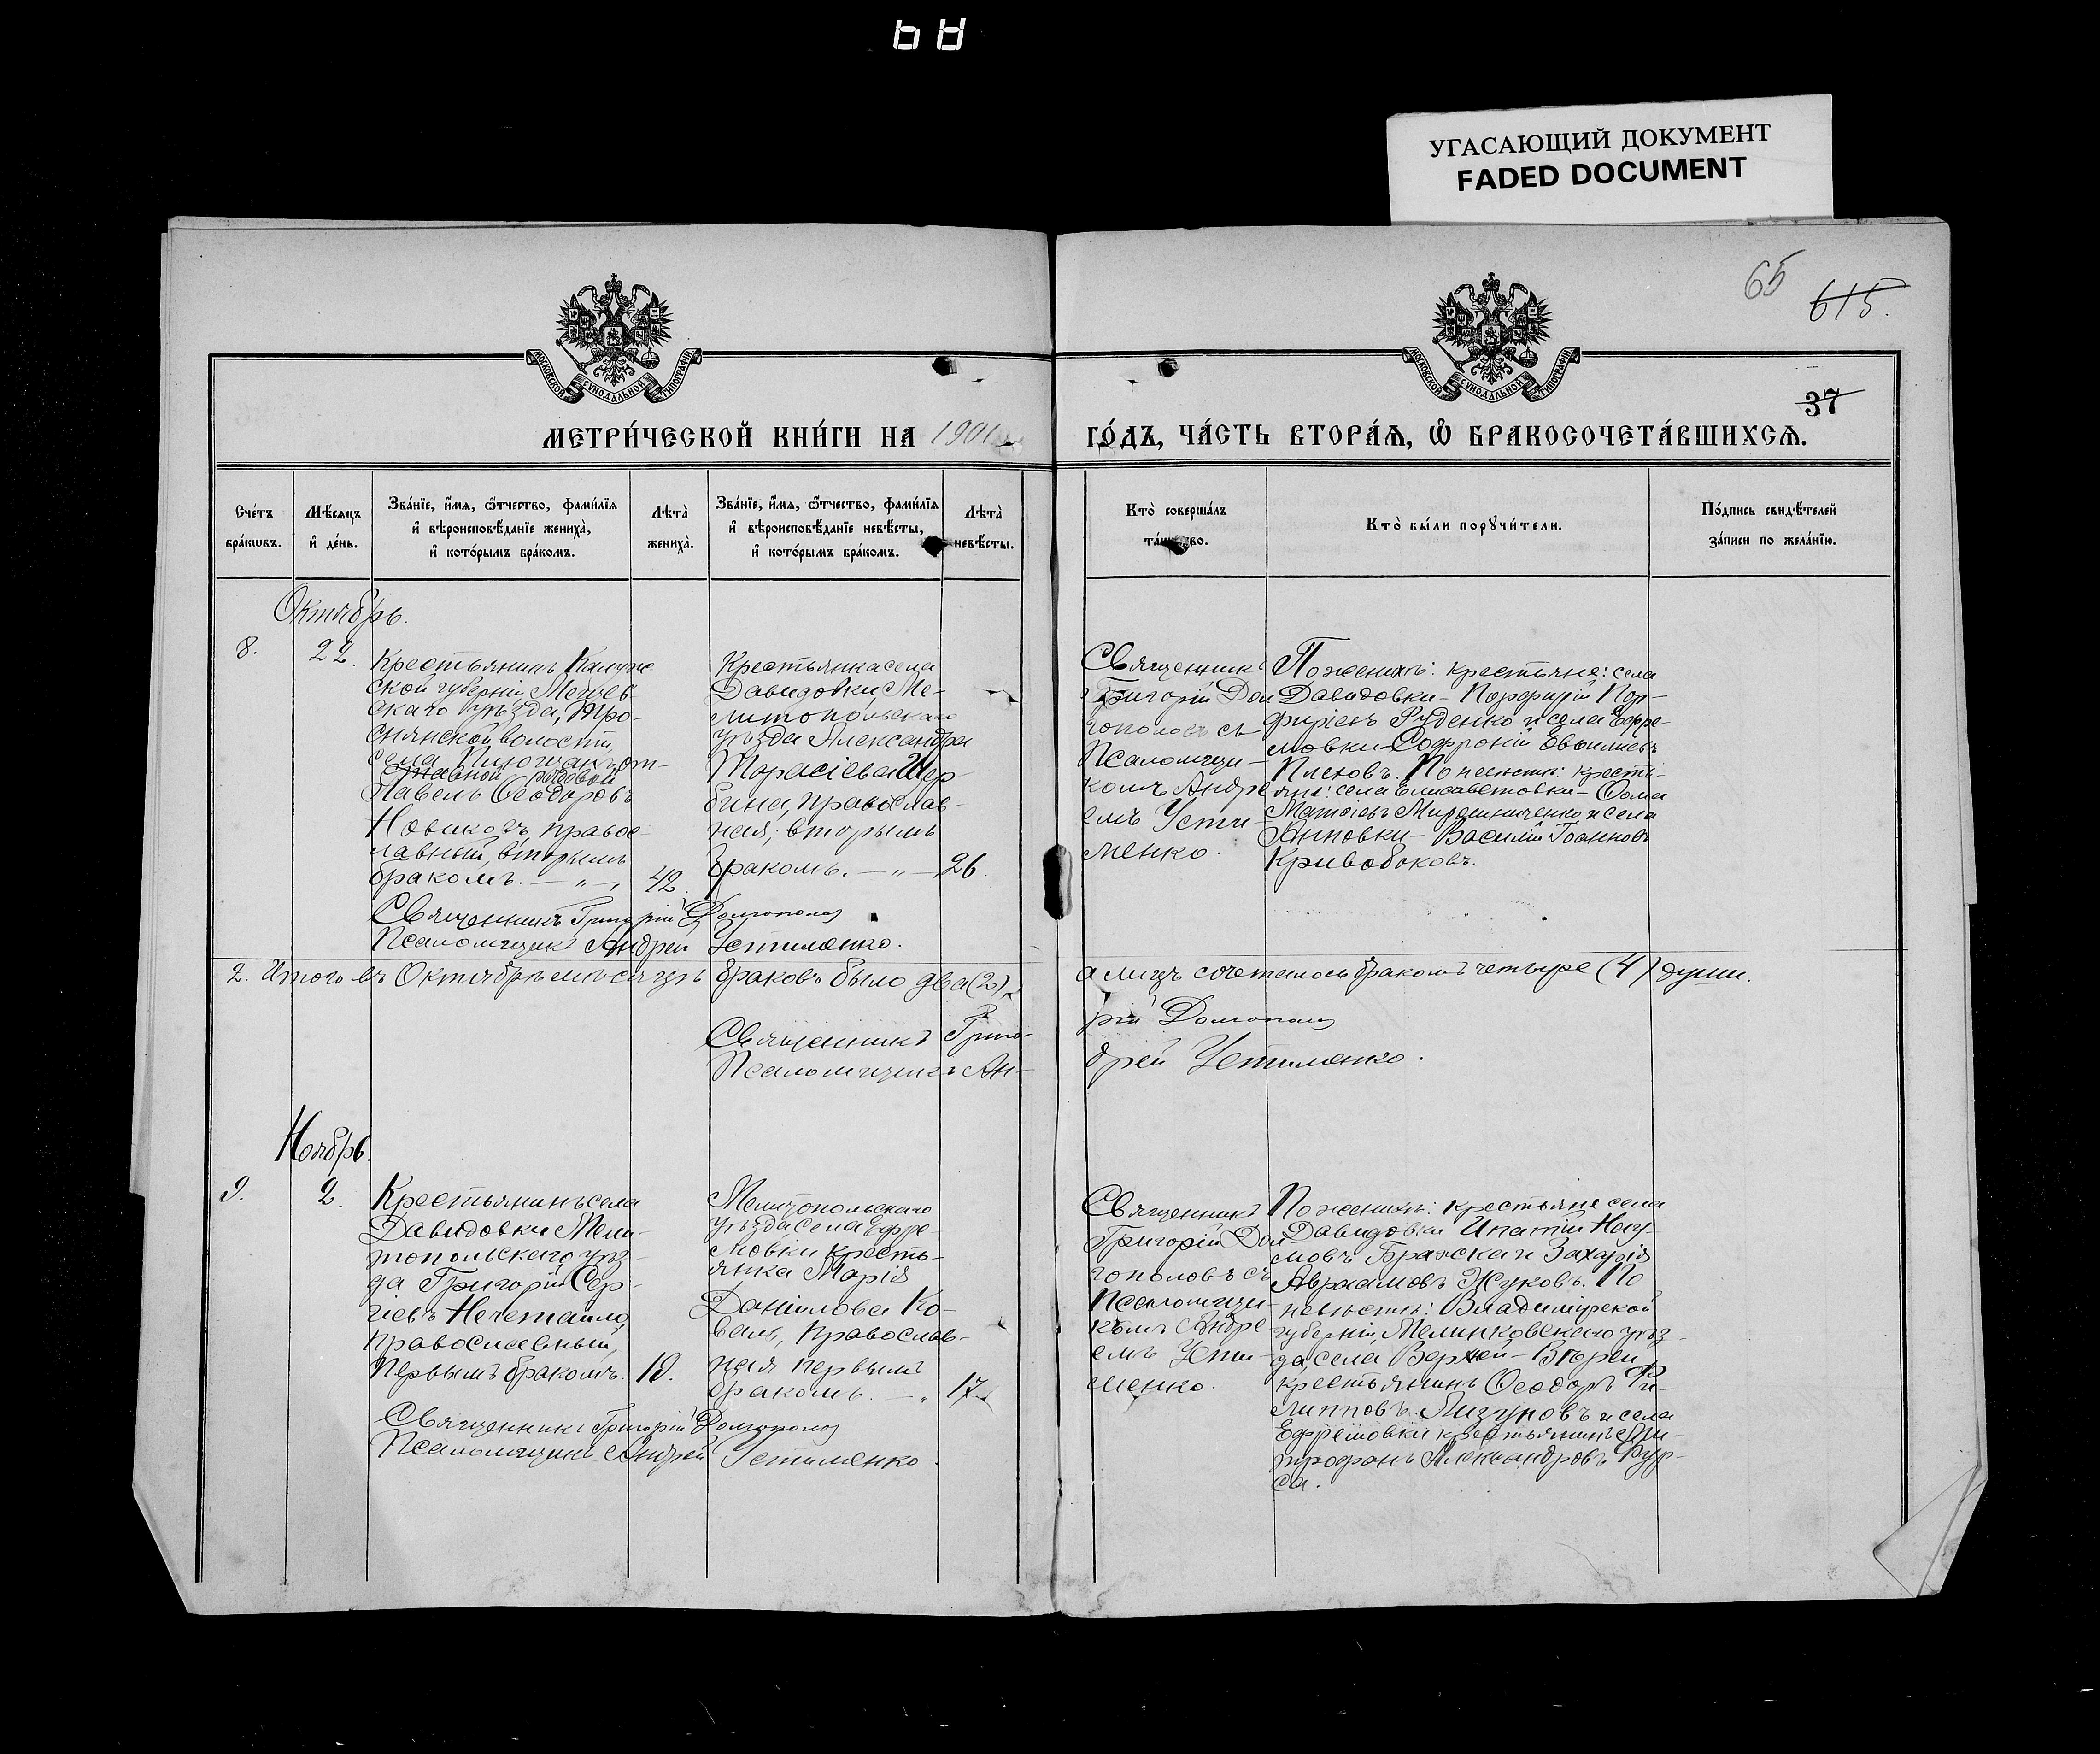 УГАСАЮЩИЙ ДОКУМЕНТ
FADED DOCUMENT
65
615.
37
МОСКОВСКОЙ СѴНОДАЛЬНОЙ ТИПОГРАФІИ
МОСКОВСКОЙ СѴНОДАЛЬНОЙ ТИПОГРАФІИ
МЕТРИ́ЧЕСКОЙ КНИ́ГИ НА 1901
ГО́ДЪ, ЧА́СТЬ ВТОРА́Ѧ, Ѽ БРАКОСОЧЕТА́ВШИХСѦ.
Сче́тъ бра́кωвъ.
Мѣ́сяцъ и҆ де́нь.
Зва́нїе, и҆́мя, ѻ҆́тчество, фами́лїя и҆ вѣроисповѣ́данїе жениха̀, и҆ кото́рымъ бра́комъ.
Лѣта̀ жениха̀.
Зва́нїе, и҆́мя, ѻ҆́тчество, фами́лїя и҆ вѣроисповѣ́данїе невѣ́сты, и҆ кото́рымъ бра́комъ.
Лѣта̀ невѣ́сты.
Кто̀ соверша́лъ
Кто̀ бы́ли порꙋчи́тели.
По́дпись свидѣ́телей за́писи по жела́нїю.
Октябрь.
8.
22.
Крестьянинъ Калуж
ской губерніи, Мещев
скаго уѣзда,
снянской волости,
села
Павелъ Ѳеодоровъ
Новиковъ, правос-
лавный, вторымъ
бракомъ. — „ —
42.
Крестьянка села
Давидовки, Ме-
литопольскаго
уѣзда Александра
Тарасіева Щер-
бина, православ-
ная, вторымъ
бракомъ. — „ —
26.
Священникъ
Григорій Дол
гополовъ съ
Псаломщи-
комъ Андре
емъ Усти-
менко.
По женихѣ: крестьяне: села
Давидовки — Порфирій Пор-
фиріевъ Руденко и села Ефре-
мовки — Софроній
По невѣстѣ: кресть-
яне: села Елисаветовки — Ѳома
Матѳіевъ Мирошниченко и села
Анновки — Василій Іоанновъ
Кривобоковъ.
Священникъ Григорій Долгополов
Псаломщикъ Андрей Устименко.
2. Итого въ Октябрѣ мѣсяцѣ браковъ было два (2),
а лицъ сочеталось бракомъ четыре (4) души.
Священникъ Григо-
рій Долгополов
Псаломщикъ Ан-
дрей Устименко.
Ноябрь.
9.
2.
Крестьянинъ села
Давидовки Мели-
топольскаго уѣз-
да Григорій Сер-
гіевъ Нечетайло,
православный,
первымъ бракомъ.
18.
Мелитопольскаго
уѣзда, села Ефре-
мовки кресть-
янка Марія
Даніилова Ко-
валь, православ-
ная первымъ
бракомъ. — „
17.
Священникъ
Григорій Дол
гополовъ съ
Псаломщи-
комъ Андре
емъ Усти-
менко.
По женихѣ: крестьяне села
Давидовки Ипатій Нау-
мовъ и Захарія
Авраамовъ Жуковъ. По
невѣстѣ: Владимірской
губерніи, Меленковскаго уѣз-
да, села Верхней-
крестьянинъ Ѳеодоръ Фи-
липповъ Лизуновъ и села
Ефремовки крестьянинъ Ми-
трофанъ Александровъ Фур-
са.
Священникъ Григорій Долгополов
Псаломщикъ Андрей Устименко.